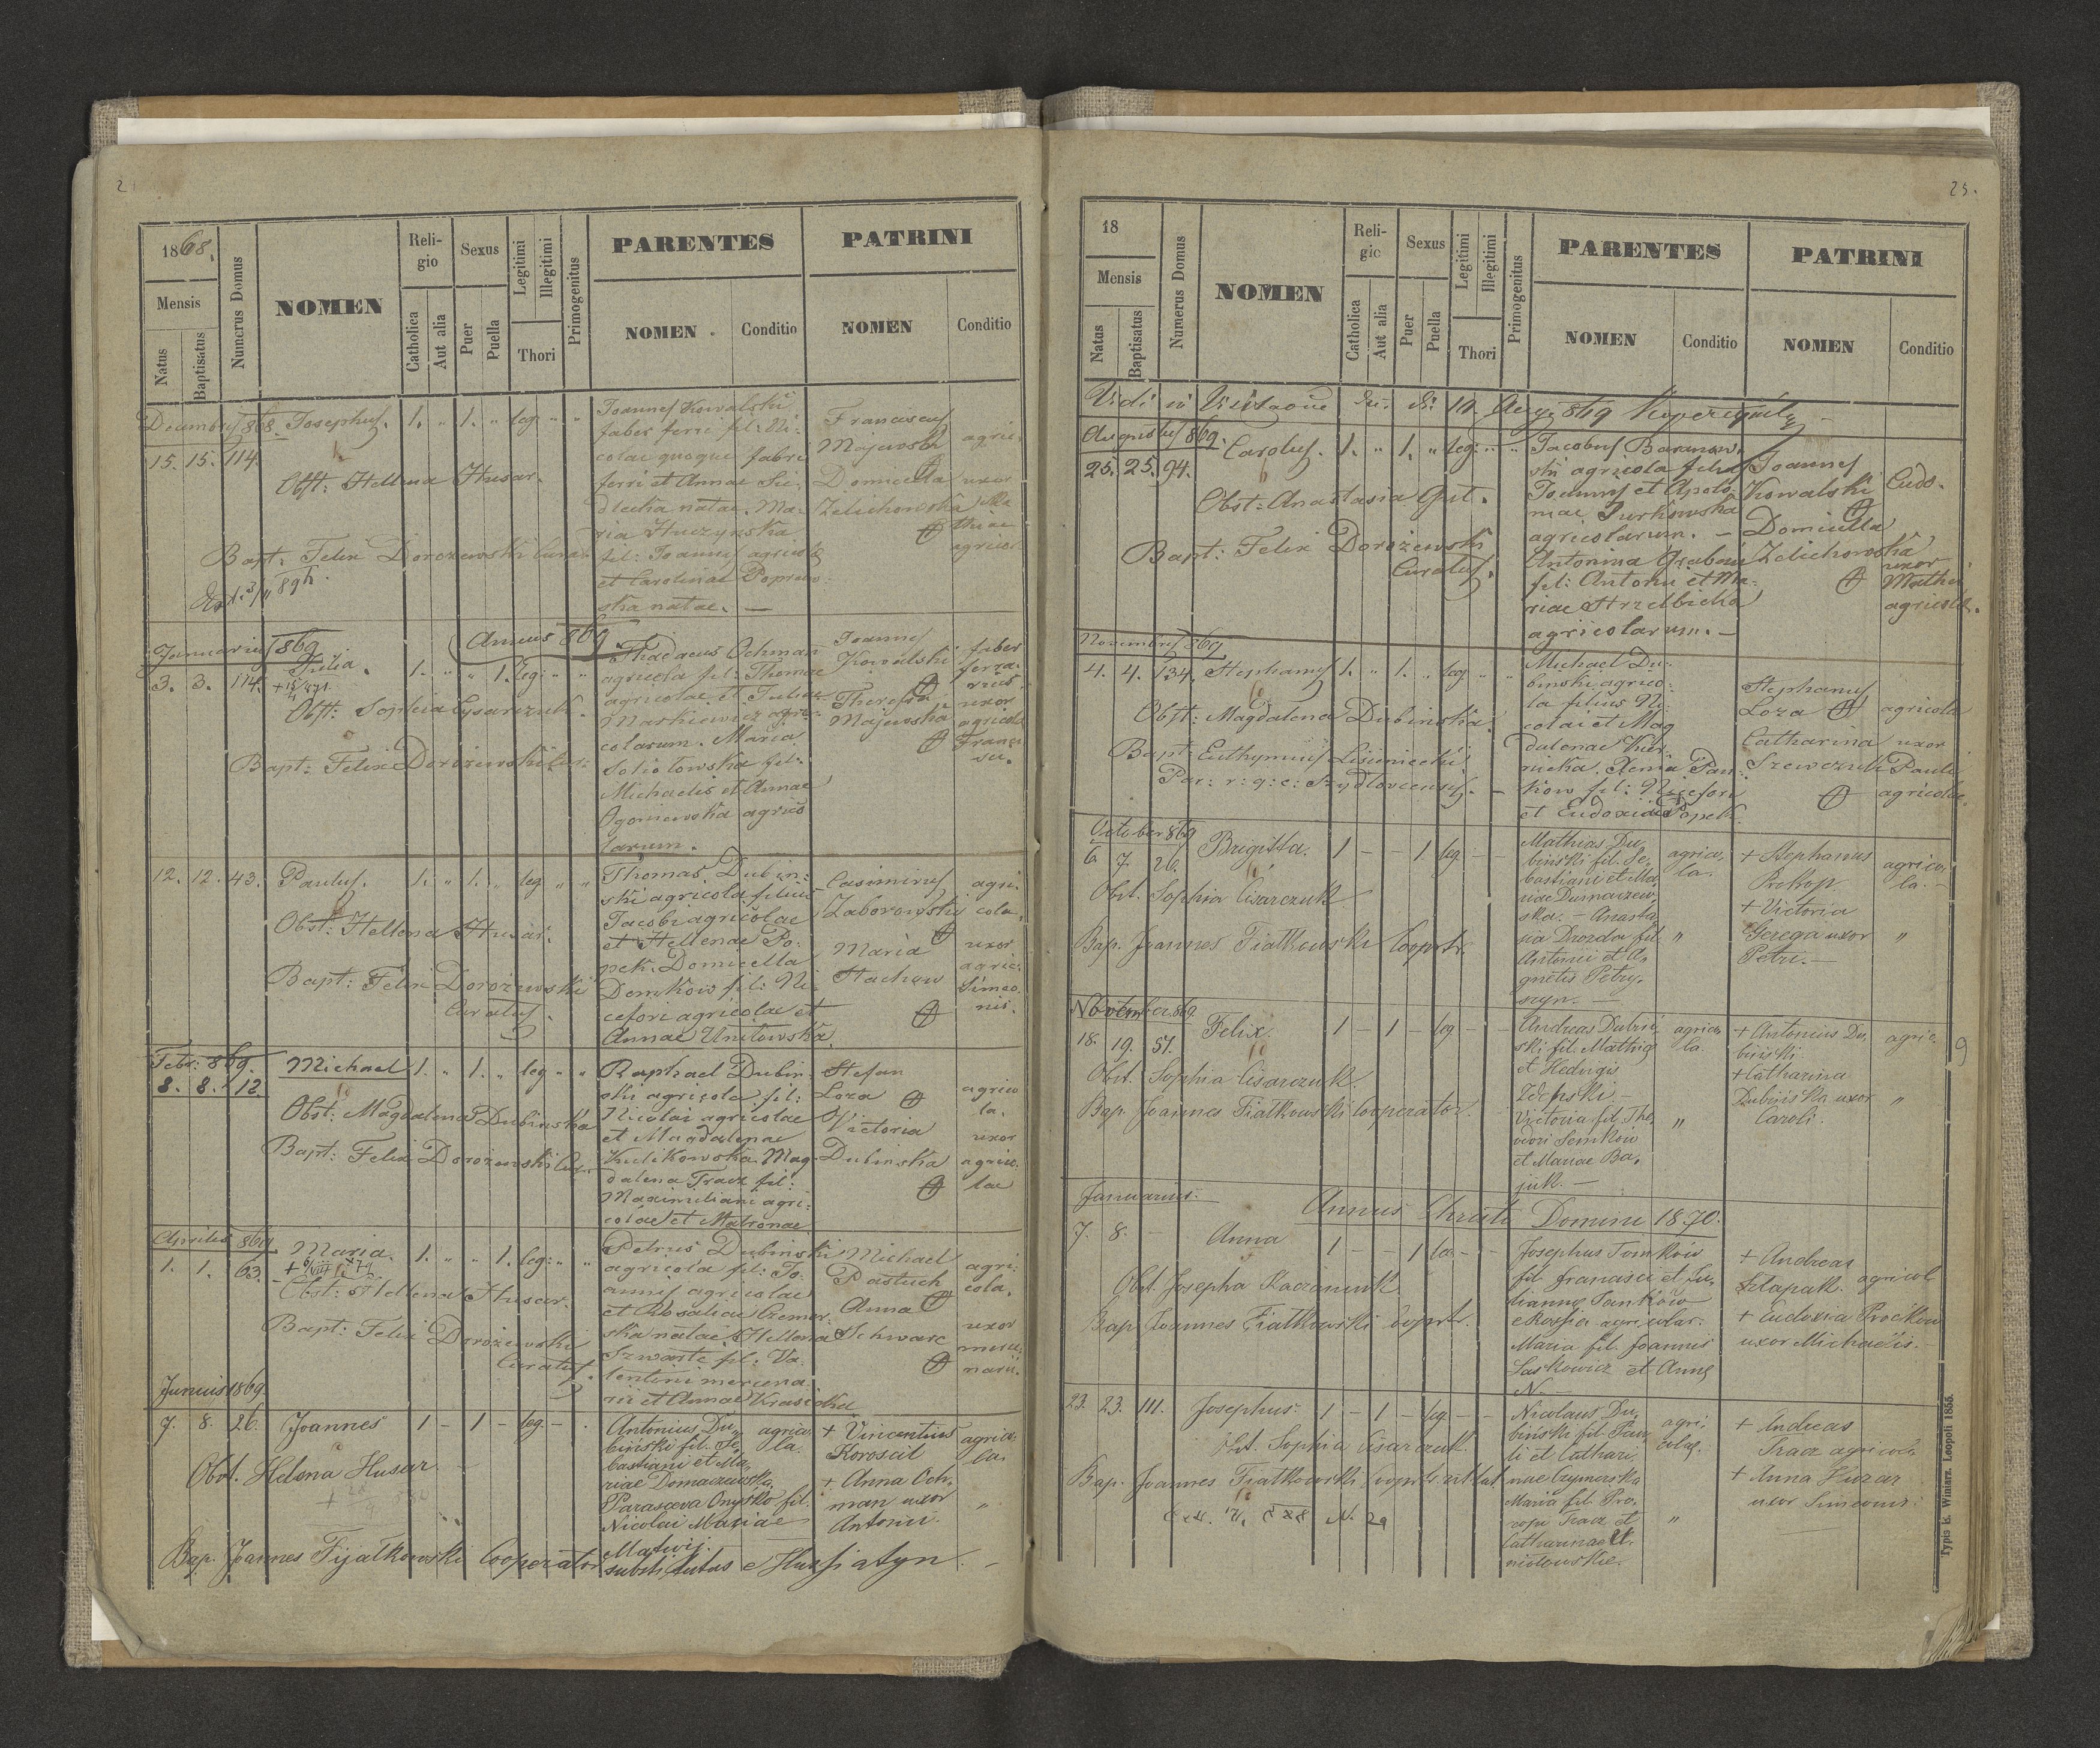 2
1868.
Mensis
Natus
Baptisatus
Numerus Domus
NOMEN
Religio
Catholica
Aut alia
Sexus
Puer
Puella
Legitimi
Illegitimi
Thori
Primogenitus
PARENTES
NOMEN
Conditio
PATRINI
NOMEN
Conditio
Decembris 868. Josephus. 1. " 1. " leg " "
15. 15. 114.
Obst: Hellena Husar.
Bapt: Felix Dorożewski Curat
Joannes Kowalski
faber ferri fil: Ni:
colai quoque fabri
ferri et Annae Sie:
dlecka natae. Ma:
ria Huczynska
fil: Joannis agricolae
et Carolinae Popraw:
ska natae. —
Franciscus
Majewski agric:
Domicella uxor
Zelichowska Ma
thiae
agricol
Annus 869
Januarius 869
3. 3. 114. Julia. 1. " " 1. leg: " "
Obst: Sophia Cysarczuk.
Bapt: Felix Dorożewski Cur:
Thadaeus Ochman
agricola fil: Thomae
agricolae et Juliae
Markiewicz agri:
colarum. Maria
Sokołowska fil:
Michaelis et Annae
Ogoniewska agrico
larum.
Joannes faber
Kowalski ferra:
rius
Theresia uxor
Majewska agricolae
Franci
sci.
12. 12. 43. Paulus. 1. " 1. " leg " "
Obst: Hellena Husar.
Bapt: Felix Dorożewski
Curatus.
Thomas Dubin:
ski agricola filius
Jacobi agricolae
et Hellenae Po:
pek. Domicella
Demkow fil: Ni:
cefori agricolae et
Annae Unitowska.
Casimirus agri:
Zaborowski cola.
Maria uxor
Stachow agric:
Simeo
nis.
Febr: 869.
8. 8. 12. Michael 1. " 1. " leg " "
Obst: Magdalena Dubinska
Bapt: Felix Dorożewski Cur:
Raphael Dubin:
ski agricola fil:
Nicolai agricolae
et Magdalenae
Kulikowska. Mag:
dalena Tracz fil:
Maximiliani agri:
colae et Matronae
Stefan
Loza agrico
la.
Victoria uxor
Dubinska agrico:
lae
Aprilis 869
1. 1. 63. Maria. 1. " " 1. leg: " "
Obst: Hellena Husar.
Bapt: Felix Dorożewski
Curatus.
Petrus Dubinski
agricola fil: Jo:
annis agricolae
et Rosaliae Cremer:
ska natae Hellena
Szwarte fil: Va:
lentini mercena:
rii et Annae Krasicka
Michael agri:
Pastuch cola.
Anna uxor
Schwarc merce:
narii.
Junius 1869
7. 8. 26. Joannes 1 – 1 – leg. –
Obst. Helena Husar
Antonius Du, agrico,
biński fil. Se, la.
bastiani et Ma,
riae Domaczewska,
Parasceva Onyśko fil.
Nicolai Mariae
Matwij.
+ Vincentius agrico,
Koroscil la.
+ Anna Och,
man uxor "
Antonii.
Bap. Joannes Fijałkowski Cooperator substitutus e Husiatyn. –
25.
18
Mensis
Natus
Baptisatus
Numerus Domus
NOMEN
Religio
Catholica
Aut alia
Sexus
Puer
Puella
Legitimi
Illegitimi
Thori
Primogenitus
PARENTES
NOMEN
Conditio
PATRINI
NOMEN
Conditio
Vidi in
Augustus 869.
25. 25. 94. Carolus. 1. " 1. " leg: " "
Obst: Anastasia Gut.
Bapt: Felix Dorożewski
Curatus.
Jacobus Baranow:
ski agricola filius
Joannis et Apolo:
niae Jurkowska
agricolarum. –
Antonina Grabow
fil: Antonii et Ma:
riae Strzelbicka
agricolarum. –
Joannes
Kowalski Cudo.
Domicella
Zelichowska
uxor
Mathei
agricolae.
Novembris 869
4. 4. 134. Stephanus 1. " 1. " leg " "
Obst: Magdalena Dubinska.
Bapt: Euthymius Lisieniecki
Par: r: g: c: Szydlovicensis. –
Michael Du:
binski agrico:
la filius Ni:
colai et Mag
dalenae Kur:
nicka. Xenia Pan:
kow fil: Nicefori
et Eudoxiae Popek.
Stephanus
Loza agricola
Catharina uxor
Szewczuk Pauli
agricolae.
October 869
6. 7. 26. Brigitta. 1 – – 1 leg. – –
Obst. Sophia Cisarczuk
Bap. Joannes Fiatkowski Cooprtr.
Mathias Du, agrico,
biński fil. Se, la.
bastiani et Ma,
riae Dumaczew,
ska. – Anasta,
sia Drozda fil. "
Antonii et A,
gnetis Petry,
szyn. –
+ Stephanus agrico,
Prokop. la. –
+ Victoria
Gerega uxor "
Petri. –
November 869
18. 19. 51. Felix. 1 – 1 – leg – –
Obst. Sophia Cisarczuk.
Bap. Joannes Fiatkowski Cooperator.
Andreas Dubiń, agrico,
ski fil. Mathiae la.
et Hedvigis
Zdenski. –
Victoria fil. The, "
odori Semkow
et Mariae Ba,
juk. –
+ Antonius Du, agric.
biński.
+ Catharina
Dubińska uxor "
Caroli.
9
Januarius. Annus Christi Domini 1870.
7. 8. – Anna 1 – – 1 leg – –
Obst. Josepha Kaczaniuk
Bap. Joannes Fiatkowski Cooprtr.
Josephus Tomków
fil. Francisci et Ju,
lianne Jankow
agricolar.
Maria fil. Joannis
Laskowicz et Annę
N. –
+ Andreas
Szlapak. agricol
+ Eudoxia Procków
uxor Michaelis. –
23. 23. 111. Josephus. 1 – 1 – leg – –
Obst. Sophia Cisarczuk.
Bap. Joannes Fiatkowski Cooprtr. ut lat.
Nicolaus Du, agri:
biński fil. Pau, colaf.
li et Cathari,
nae Czymerska
Maria fil. Pro, "
copii Tracz et
Catharinae
+ Andreas
Tracz agricola
+ Anna Huzar
uxor Simeonis.
Typis E. Winiarz. Leopoli 1855.